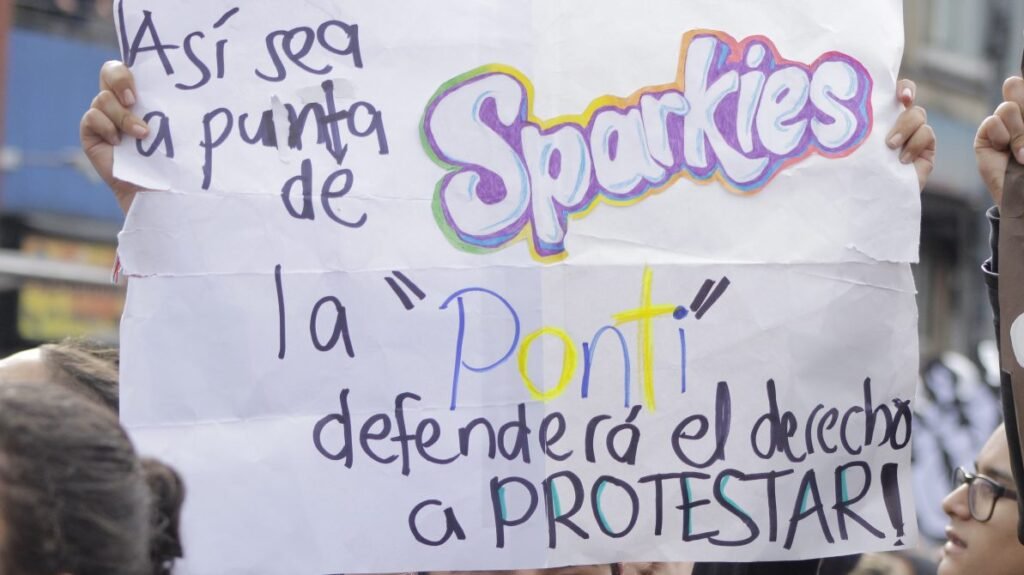 Así sea
a punta
de Sparkies
la "Ponti"
defenderá el derecho
a PROTESTAR!